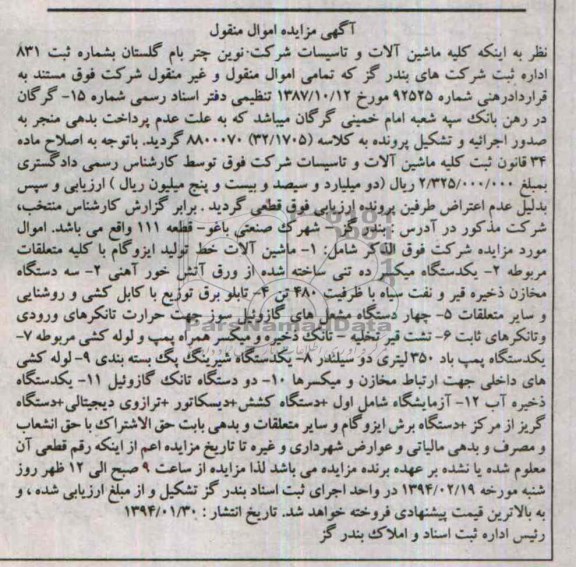 آگهی مزایده اموال منقول
نظر به اینکه کلیه ماشین آلات و تاسیسات شرکت نوین چتر بام گلستان بشماره ثبت ۸۳۱
اداره ثبت شرکت های بندر گز که تمامی اموال منقول و غیر منقول شرکت فوق مستند به
قراردادرهنی شماره ۹۲۵۲۵ مورخ ۱۳۸۷/۱۰/۱۲ تنظیمی دفتر اسناد رسمی شماره ۱۵- گرگان
در رهن بانک سپه شعبه امام خمینی گرگان میباشد که به علت عدم پرداخت بدهی منجر به
صدور اجرائیه و تشکیل پرونده به کلاسه (۳۲/۱۷۰۵) ۸۸۰۰۰۷۰ گردید. باتوجه به اصلاح ماده
۳۴ قانون ثبت کلیه ماشین آلات و تاسیسات شرکت فوق توسط کارشناس رسمی دادگستری
بمبلغ ۲/۳۲۵/۰۰۰/۰۰۰ ریال (دو میلیارد و سیصد و بیست و پنج میلیون ریال ) ارزیابی و سپس
بدلیل عدم اعتراض طرفین پرونده ارزیابی فوق قطعی گردید . برابر گزارش کارشناس منتخب،
شرکت مذکور در آدرس : بندر گز- شهرک صنعتی باغو- قطعه ۱۱۱ واقع می باشد. اموال
مورد مزایده شرکت فوق الذکر شامل: ۱- ماشین آلات خط تولید ایزوگام با کلیه متعلقات
مربوطه ۲- یکدستگاه میکسر ده تنی ساخته شده از ورق آتش خور آهنی ۲- سه دستگاه
مخازن ذخیره قیر و نفت سیاه با ظرفیت ۴۸۰ تن ۴- تابلو برق توزیع با کابل کشی و روشنایی
و سایر متعلقات ۵- چهار دستگاه مشعل های گازوئیل سوز جهت حرارت تانکرهای ورودی
وتانکرهای ثابت ۶- تشت قیر تخلیه – تانک ذخیره و میکسر همراه پمپ و لوله کشی مربوطه ۷-
یکدستگاه پمپ باد ۳۵۰ لیتری دو سیلندر ۸- یکدستگاه شیرینگ پک بسته بندی ۹- لوله کشی
های داخلی جهت ارتباط مخازن و میکسرها ۱۰- دو دستگاه تانک گازوئیل ۱۱- یکدستگاه
ذخیره آب ۱۲- آزمایشگاه شامل اول +دستگاه کشش +دیسکاتور +ترازوی دیجیتالی+دستگاه
گریز از مرکز +دستگاه برش ایزوگام و سایر متعلقات و بدهی بابت حق الاشتراک یا حق انشعاب
و مصرف و بدهی مالیاتی و عوارض شهرداری و غیره تا تاریخ مزایده اعم از اینکه رقم قطعی آن
معلوم شده یا نشده بر عهده برنده مزایده می باشد لذا مزایده از ساعت ۹ صبح الی ۱۲ ظهر روز
شنبه مورخه ۱۳۹۴/۰۲/۱۹ در واحد اجرای ثبت اسناد بندر گز تشکیل و از مبلغ ارزیابی شده ، و
به بالاترین قیمت پیشنهادی فروخته خواهد شد. تاریخ انتشار : ۱۳۹۴/۰۱/۳۰
رئیس اداره ثبت اسناد و املاک بندر گز
ParsNamadData